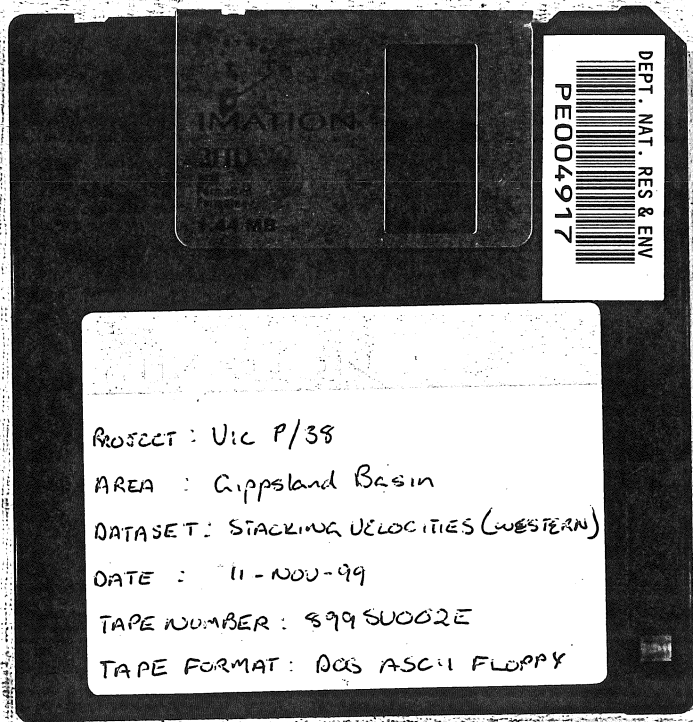 IMATION
2HD
1.44 MB
DEPT. NAT. RES & ENV
PE004917
PROJECT : VIC P/38
AREA : Gippsland Basin
DATASET: STACKING VELOCITIES (WESTERN)
DATE : 11-NOV-99
TAPE NUMBER: 899SV002E
TAPE FORMAT: DOS ASCII FLOPPY